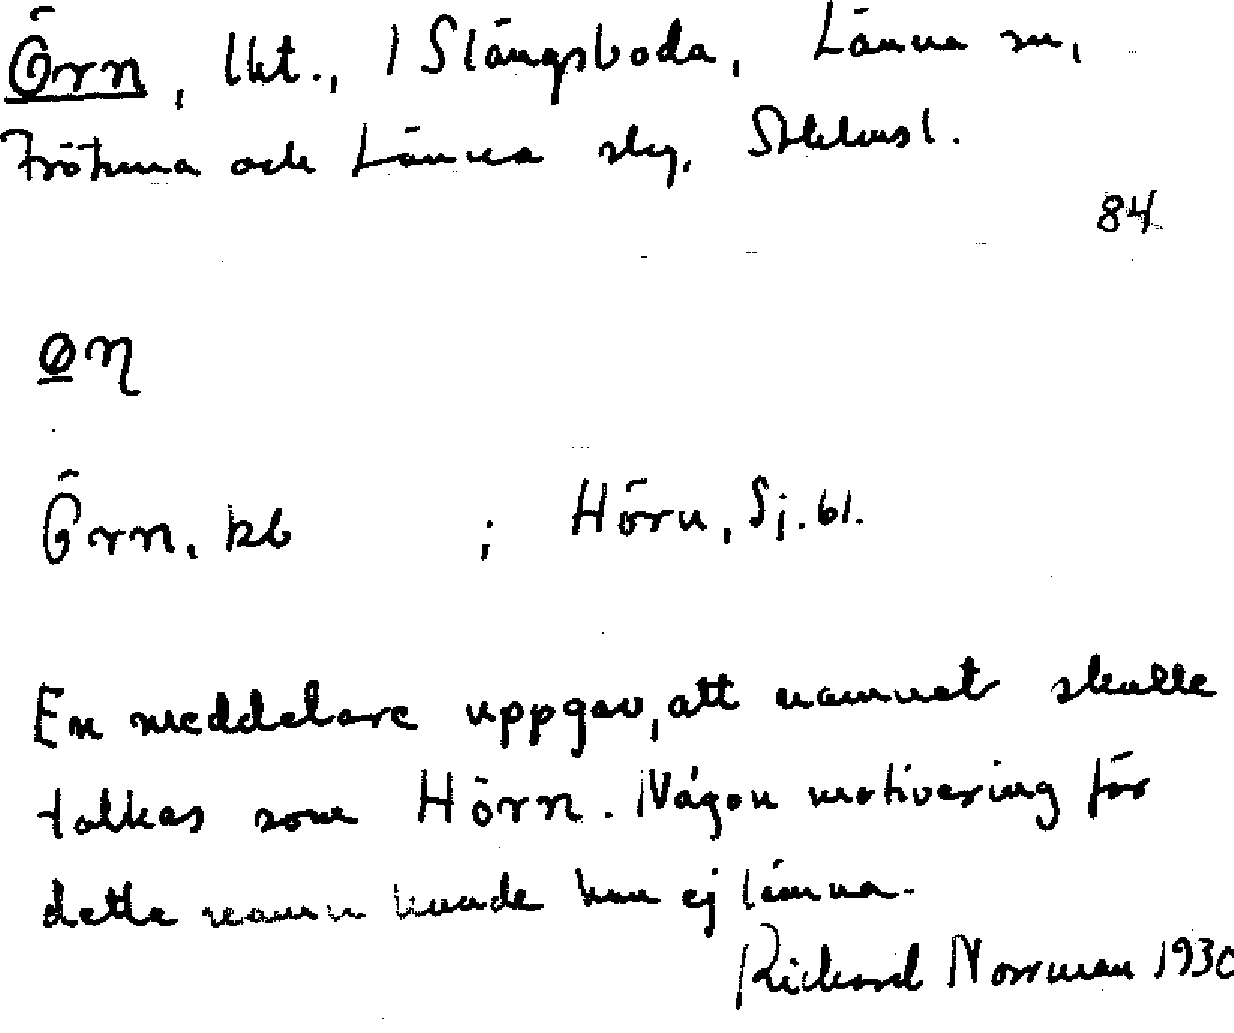 Örn, lht., / Slängsboda, Länna sn,
Frötuna och Länna slg, Sthlms l.
84
øɳ
Örn, kb ; Hörn, Sj. bl.
En meddelare uppgav, att namnet skulle
tolkas som Hörn. Någon motivering för
detta namn kunde han ej lämna.
Rickard Norrman 1930